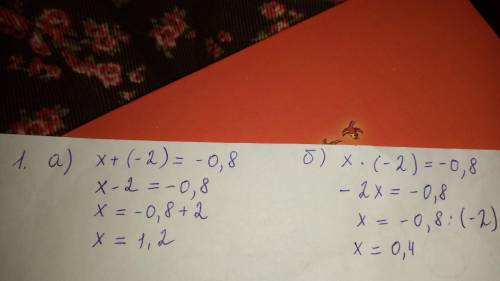 1. а) x + (-2) = -0,8
x - 2 = -0,8
x = -0,8 + 2
x = 1,2
б) x · (-2) = -0,8
- 2x = -0,8
x = -0,8 : (-2)
x = 0,4